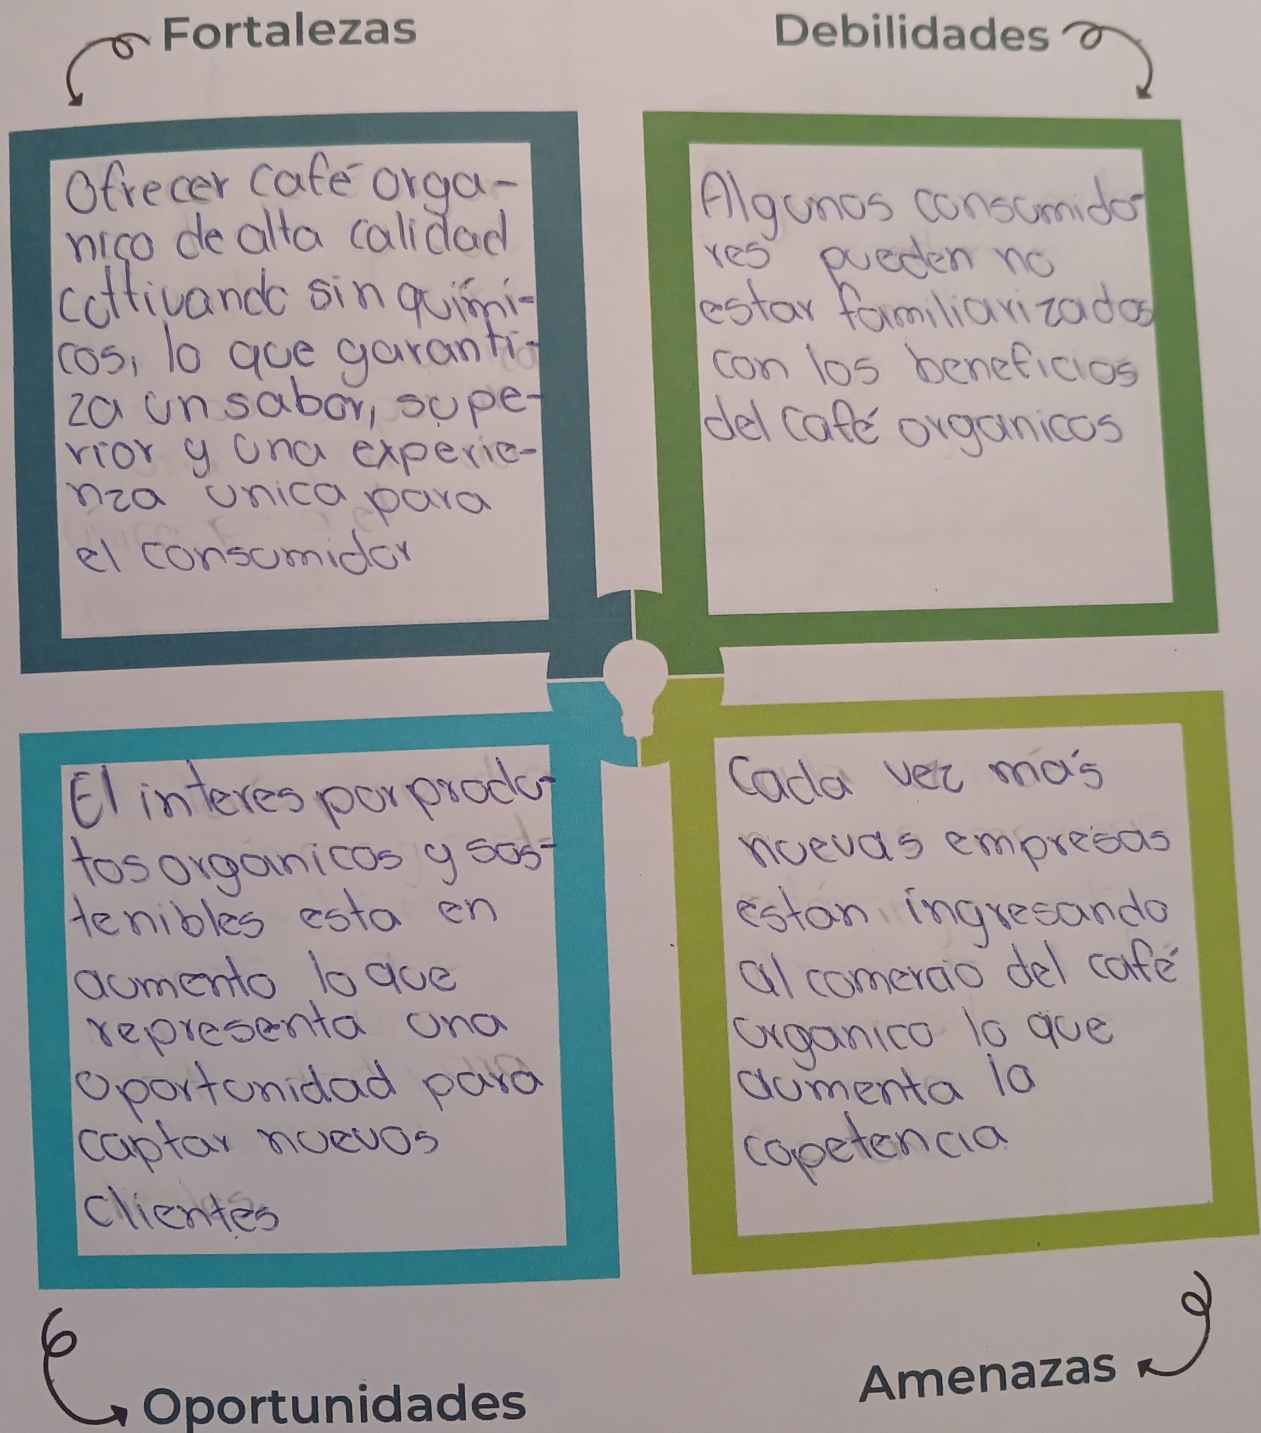 Fortalezas
Ofrecer café orga-
nico de alta calidad
cultivando sin quimi-
cos, lo que garanti-
za un sabor, supe-
rior y una experie-
nza unica para
el consumidor
Debilidades
Algunos consumido-
res pueden no
estar familiarizados
con los beneficios
del café organicos
El interes por produ-
tos organicos y sos-
tenibles esta en
aumento lo que
representa una
oportunidad para
captar nuevos
clientes
Oportunidades
Cada vez más
nuevas empresas
están ingresando
al comercio del café
organico lo que
aumenta la
copetencia
Amenazas